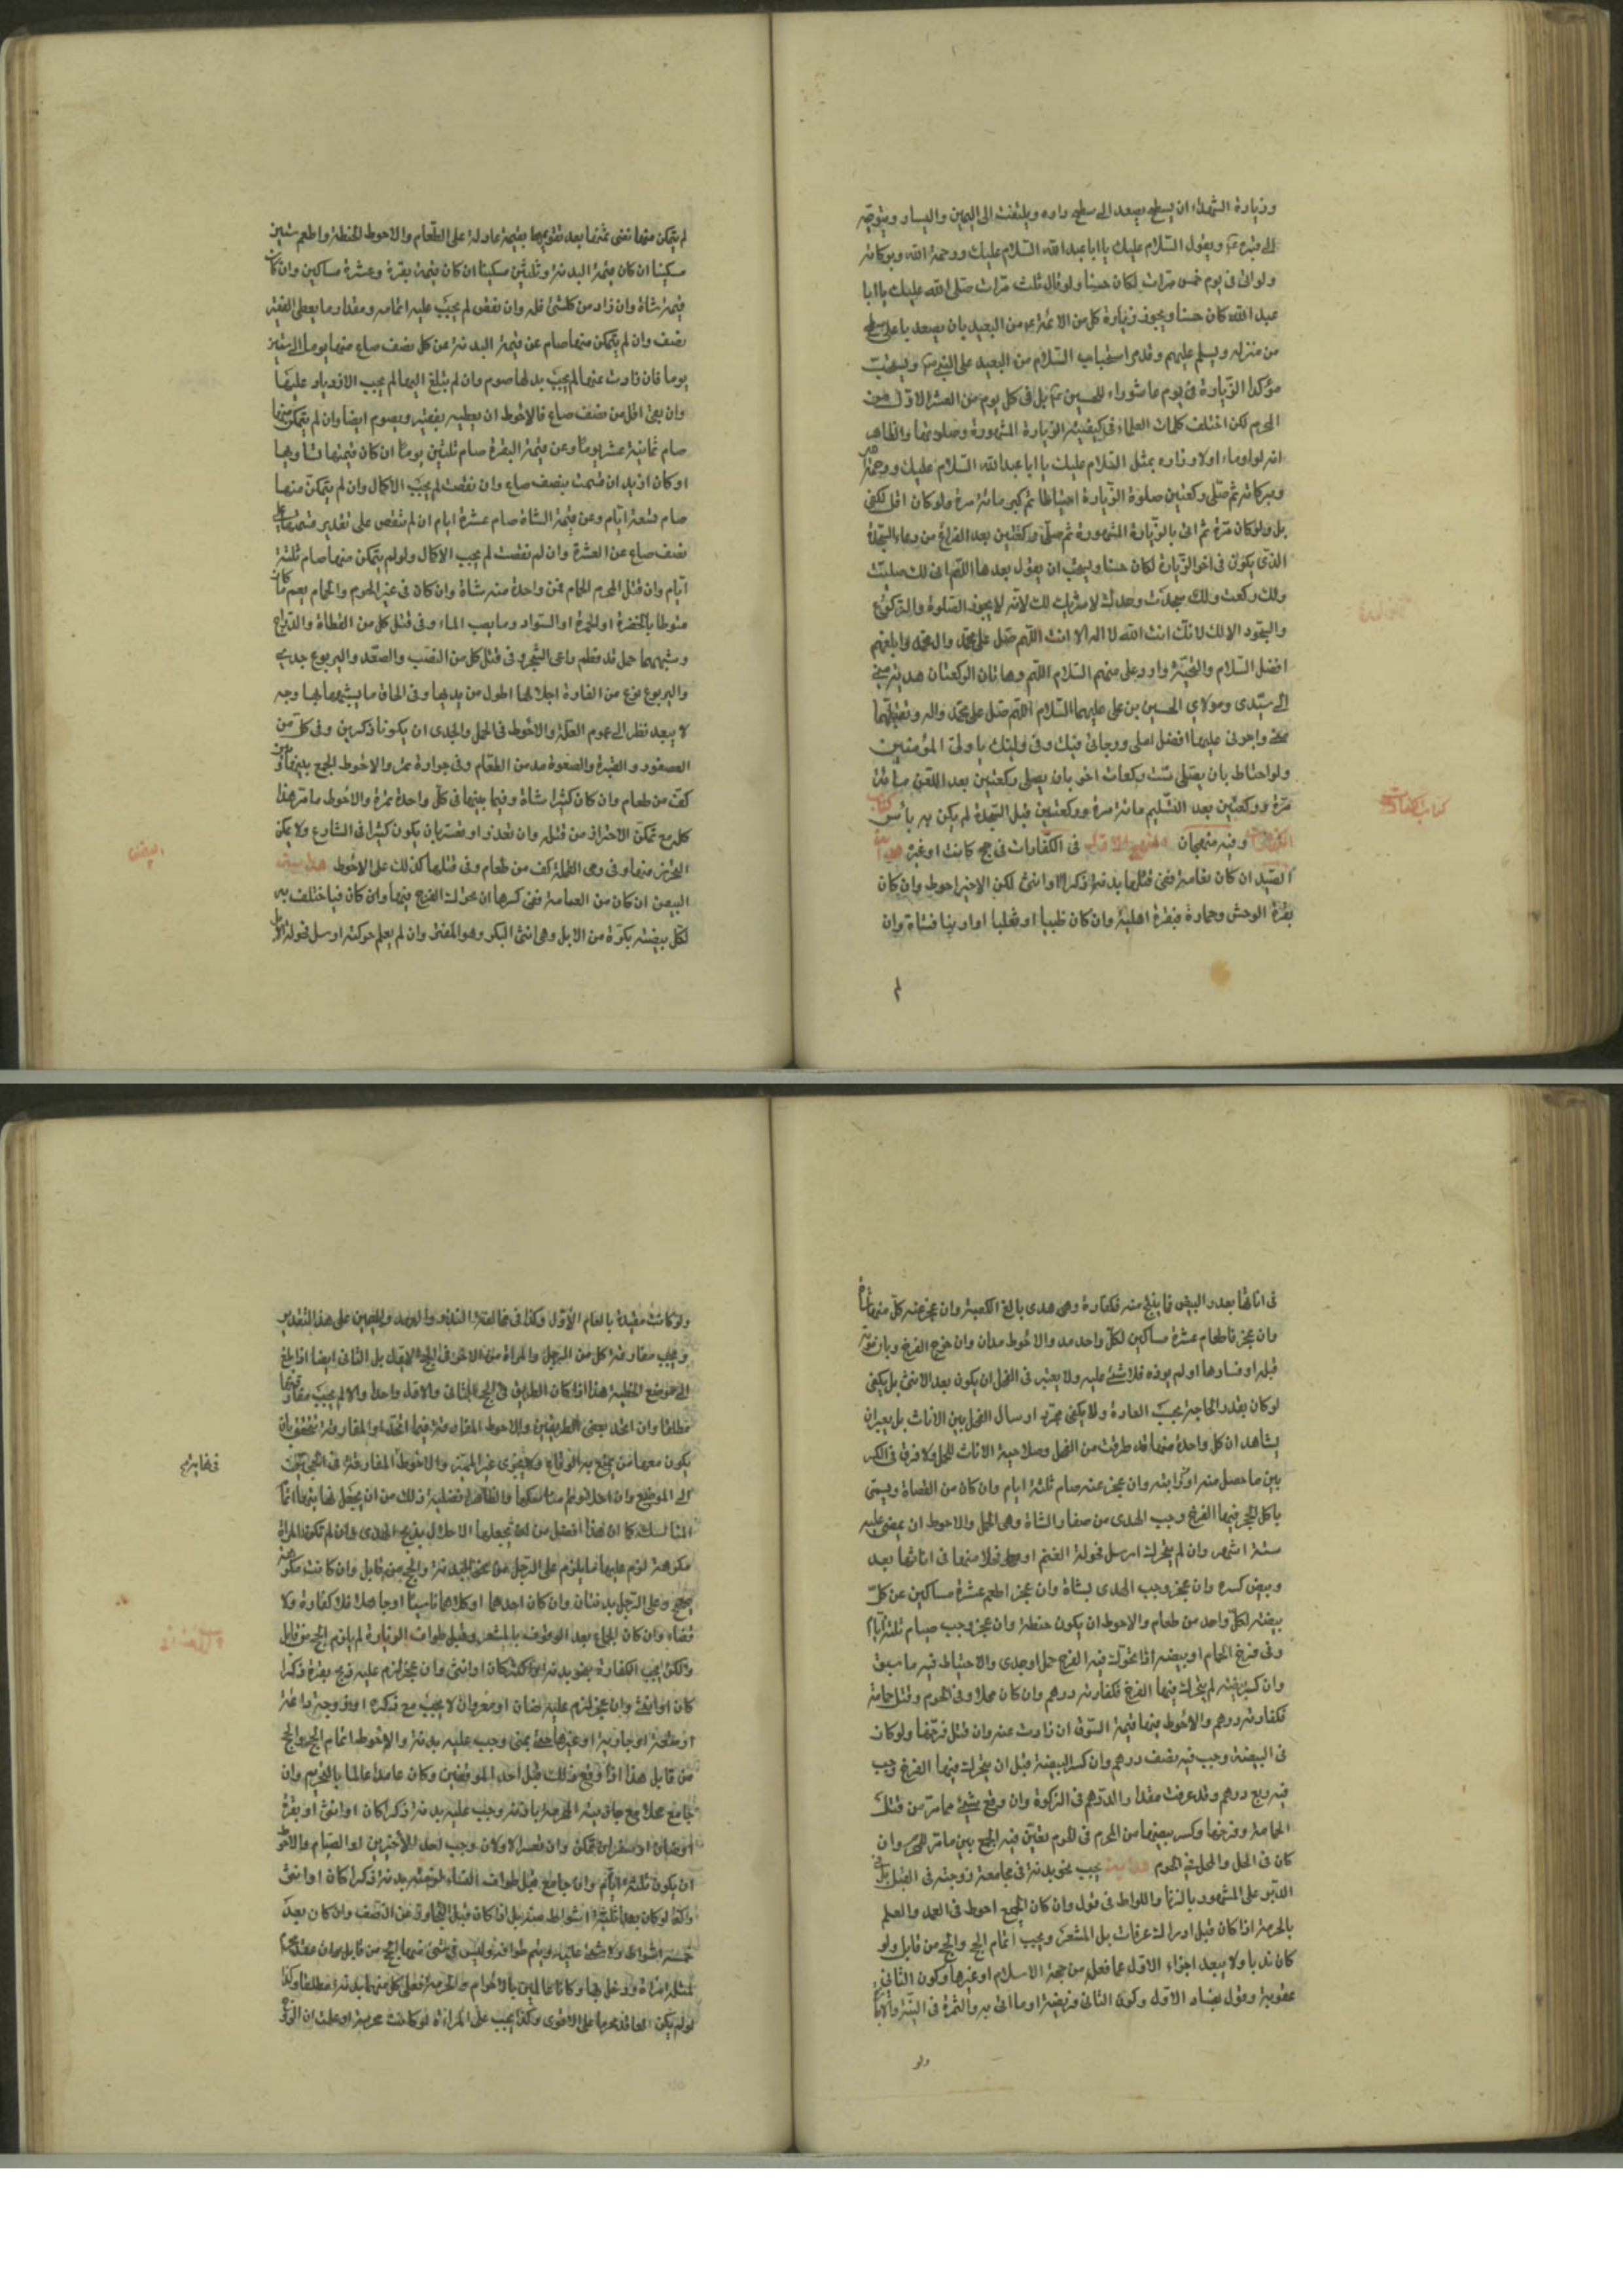 وزيارة الشهداء ان يسطع يصعد الى سطح داره ويلتفت الى اليمين واليسار ويتوجه
الى قبره ويقول السلام عليك يا ابا عبد الله السلام عليك ورحمة الله وبركاته
ولو اتى فى يوم خمس مرات لكان حسنا ولو قال ثلث مرات صلى الله عليك يا ابا
عبد الله كان حسنا ويجوز زيارة كل من الائمة من البعيد بان يصعد باعلى سطح
من منزله ويسلم عليهم وقد مر استحباب السلام من البعيد على النبى ويستحب
مؤكدا الزيارة فى يوم عاشوراء للحسين بل فى كل يوم من العشر الاول من
المحرم لكن اختلف كلمات العلماء فى كيفية الزيارة المشهورة وصلوتها والظاهر
انه لو اوماء اولا وزاره بمثل السلام عليك يا ابا عبد الله السلام عليك ورحمة الله
وبركاته ثم صلى ركعتين صلوة الزيارة احتياطا ثم كبر مائة مرة ولو كان اقل لكفى
بل ولو كان مرة ثم اتى بالزيارة المشهورة ثم صلى ركعتين بعد الفراغ من دعاء السجدة
الذى يكون فى اخر الزيارة لكان حسنا ويستحب ان يقول بعدها اللهم انى لك صليت
ولك ركعت ولك سجدت وحدك لا شريك لك لانه لا يجوز الصلوة والركوع
والسجود الا لك لانك انت الله لا اله الا انت اللهم صل على محمد وال محمد وابلغهم
افضل السلام والتحية واردد على منهم السلام اللهم وهاتان الركعتان هدية منى
الى سيدى ومولاى الحسين بن على عليهما السلام اللهم صل على محمد واله وتقبلهما
منى واجرنى عليهما افضل املى ورجائى فيك وفى وليك يا ولى المؤمنين
ولو احتاط بان يصلى ست ركعات اخر بان يصلى ركعتين بعد اللعن مائة
مرة وركعتين بعد التسليم مائة مرة وركعتين قبل السجدة لم يكن به بأس كتاب
الكفارات وفيه منهجان المنهج الاول فى الكفارات فى حج كانت او غيره هداية
الصيد ان كان نعامة ففى قتلها بدنة ذكرا او انثى لكن الاخير احوط وان كان
بقرة الوحش وحماره فبقرة اهلية وان كان ظبيا او ثعلبا او ارنبا فشاة وان
لم
كتاب الكفارات
لم يتمكن منها تفض ثمنها بعد تقويمها بقيمة عادلة على الطعام والاحوط الحنطة واطعم ستين
مسكينا ان كان قيمة البدنة وثلثين مسكينا ان كان قيمة بقرة وعشرة مساكين وان كان
قيمة شاة وان زاد من كل شئ فله وان نقص لم يجب عليه اتمامه ومقدار ما يعطى الفقير
نصف وان لم يتمكن منها صام عن قيمة البدنة عن كل نصف صاع منها يوما الى ستين
يوما فان زادت عنها لم يجب بدلها صوم وان لم تبلغ اليها لم يجب الازدياد عليها
وان بقى اقل من نصف صاع فالاحوط ان يعطيه بفقير ويصوم ايضا وان لم يتمكن منها
صام ثمانية عشر يوما وعن قيمة البقرة صام ثلثين يوما ان كان قيمتها تساويها
او كان ازيد ان قسمت بنصف صاع وان نقصت لم يجب الاكمال وان لم يتمكن منها
صام تسعة ايام وعن قيمة الشاة صام عشرة ايام ان لم تنقص على تقدير قسمتها على
نصف صاع عن العشرة وان لم نقصت لم يجب الاكمال ولو لم يتمكن منها صام ثلثة
ايام وان قتل المحرم الحمام فمن واحدة منه شاة وان كان فى غير الحرم والحمام يعم ما كان
منوطا بالخضرة او الحمرة او السواد وما يعب الماء وفى قتل كل من القطاة والدراج
وشبههما حمل قد فطم ورعى الشجر وفى قتل كل من الضب والقنفذ واليربوع جدى
واليربوع نوع من الفارة ارجلها اطول من يديها وفى الحاق ما يشبهها بها وجه
لا يبعد نظرا الى عموم العلة والاحوط فى الحمل والجدى ان يكونا ذكرين وفى كل من
العصفور والقبرة والصعوة مد من الطعام وفى جرادة تمرة والاحوط الجمع بينها وبين
كف من طعام وان كان كثيرا شاة وفيما بينهما فى كل واحدة تمرة والاحوط ما مر هذا
كله مع تمكن الاحتراز من قتله وان تعذر او تعسر بان يكون كثيرا فى الشارع ولا يمكن
التحرز منها وفى رمى القملة كف من طعام وفى قتلها كذلك على الاحوط هداية
البيض ان كان من النعامة ففى كسرها ان تحرك الفرخ فيها وان كان فيما اختلف به
لكل بيضة بكرة من الابل وهى انثى البكر وهو الفتى وان لم يعلم حركته ارسل فحولة الابل
البيض
فى اناثها بعدد البيض فما ينتج منه فكفارة وهى هدى بالغ الكعبة وان عجز عنه كل منها شاة
وان عجز فاطعام عشرة مساكين لكل واحد مد والاحوط مدان وان خرج الفرخ وبان موته
قبله او فسادها او لم يوذه فلا شئ عليه ولا يعتبر فى الفحل ان يكون بعدد الانثى بل يكفى
لو كان بقدر الحاجة بحسب العادة ولا يكفى مجرد ارسال الفحل بين الاناث بل يعتبر ان
يشاهد ان كل واحدة منها قد طرقت من الفحل وصلاحية الاناث للحمل ولا فرق فى الكسر
بين ما حصل منه او دابته وان عجز عنه صام ثلثة ايام وان كان من القطاة ويسمى
باكل الحجر فيها الفرخ وجب الهدى من صغار الشاة وهى الحمل والاحوط ان يمضى عليه
ستة اشهر وان لم يتحرك ارسل فحولة الغنم او فحلا منها فى اناثها بعدد
وبيض كسره وان عجز وجب الهدى بشاة وان عجز اطعم عشرة مساكين عن كل
بيضة لكل واحد من طعام والاحوط ان يكون حنطة وان عجز وجب صيام ثلثة ايام
وفى فرخ الحمام او بيضه اذا تحرك فيه الفرخ حمل او جدى والاحتياط فيه ما سبق
وان كسر بيضه لم يتحرك فيها الفرخ فكفارته درهم وان كان محلا وفى الحرم وقتل حمامة
فكفارته درهم والاحوط فيها قيمة السوق ان زادت عنه وان قتل فرخها ولو كان
فى البيضة وجب فيه نصف درهم وان كسر البيضة قبل ان يتحرك فيها الفرخ وجب
فيه ربع درهم وقد عرفت مقدار الدرهم فى الزكوة وان وقع شئ مما مر من قتل
الحمامة وفرخها وكسر بيضها من المحرم فى الحرم تعين فيه الجمع بين ما مر للمحرم وان
كان فى الحل والمحل فى الحرم هداية يجب بدنة فى مجامعة زوجته فى القبل بل فى
الدبر على المشهور بالزنا واللواط فى قول وان كان الجمع احوط فى العمد والعلم
بالحرمة اذا كان قبل ادراك عرفات بل المشعر ويجب اتمام الحج والحج من قابل ولو
كان ندبا ولا يبعد اجزاء الاول عما فعل من حجة الاسلام او غيرها وكون الثانى
عقوبة وقول بفساد الاول وكون الثانى فريضة او ما اتى به والثمرة فى النية والاجا
ولو
ولو كانت مقيدة بالعام الاول وكذا فى مخالفة النذر والعهد واليمين على هذا التقدير
ويجب مفارقة كل من الرجل والمراة من الاخر فى الحج الاول بل الثانى ايضا اذا بلغ
الى موضع الخطيئة هذا اذا كان الطريق فى الحج الثانى والاول واحدا والا لم يجب مفارقتهما
مطلقا وان اتحد بعض الطريقين والاحوط المفارقة فيما اتحد والمفارقة تتحقق بان
يكون معهما من يمتنع به الوقاع ولا يقوى غير المميز والاحوط المفارقة فى
الى الموضع وان
المناسك كما ان هذا افضل من ان يجعلها الاحلال بذبح الهدى وان لم تكن المراة
مكرهة لزم عليها ما يلزم على الرجل من نحو البدنة والحج من قابل وان كانت مكرهة
صح وعلى الرجل بدنتان وان كان احدهما او كلاهما ناسيا او جاهلا فلا كفارة ولا
قضاء وان كان الجماع بعد الوقوف بالمشعر وقبل طواف الزيارة لم يلزم الحج من قابل
ولكن يجب الكفارة بنحو بدنة كان او انثى وان عجز لزم عليه ذبح بقرة ذكرا
كان او انثى وان عجز لزم عليه ضان او معز وان لا يجب مع تذكره او زوجة دائمة
او متعة او جارية او غيرها حتى يمنى وجب عليه بدنة والاحوط اتمام الحج والحج
من قابل هذا اذا وقع ذلك قبل احد الموقفين وكان عامدا عالما بالتحريم وان
جامع محلا مع جاريته المحرمة باذنه وجب عليه بدنة ذكرا كان او انثى او بقرة
او شاة ان تمكن وان تعسر الاولان وجب احد الاخيرين او الصيام والاحوط
ان يكون ثلثة ايام وان جامع قبل طواف النساء لزمته بدنة ذكرا كان او انثى
وكذا لو كان بعد ثلثة اشواط منه بل اذا كان قبل التجاوز عن النصف وان كان بعد
خمسة اشواط ولا شئ عليه ويتم طوافه وليس فى شئ منها الحج من قابل وان عقد محرم
لمثله امراة ودخل بها وكانا عالمين بالاحرام والحرمة فعلى كل منهما بدنة مطلقا وكذا
لو لم يكن العاقد محرما على الاقوى وكذا يجب على المراة لو كانت محرمة او علمت ان الزوج